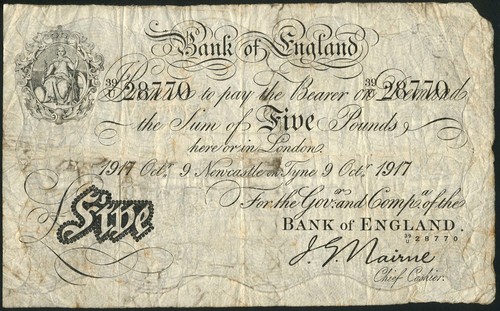 Bank of England
39 28770 39 28770
Promise to pay the Bearer on Demand
the Sum of Five Pounds
here or in London.
1917 Octr. 9 Newcastle on Tyne 9 Octr. 1917
For the Govr. and Compa. of the
Five
BANK OF ENGLAND.
28770
J. G. Nairne
Chief Cashier.